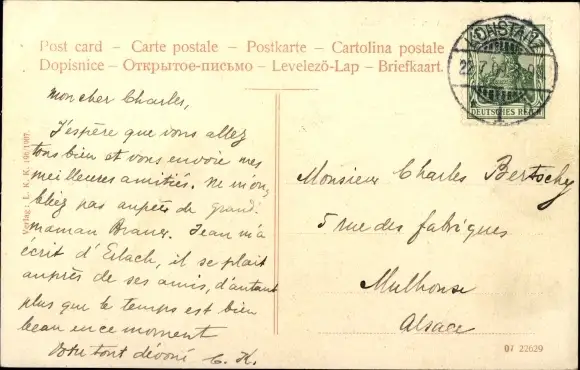 Post card – Carte postale – Postkarte – Cartolina postale
Dopisnice – Открытое-письмо – Levelező-Lap – Briefkaart.
KONSTANZ
DEUTSCHES REICH
Mon cher Charles,
J'espère que vous allez
tous bien et vous envoie mes
meilleures amitiés. Ne m'ou-
bliez pas auprès de grand-
maman Jean m'a
écrit d'Erlach, il se plait
auprès de ses amis, d'autant
plus que le temps est bien
beau en ce moment
Votre tout dévoué C. K.
Monsieur Charles Bertschy
5 rue des fabriques
Mulhouse
Alsace
Verlag: L. K. K. 196/1907.
07 22629